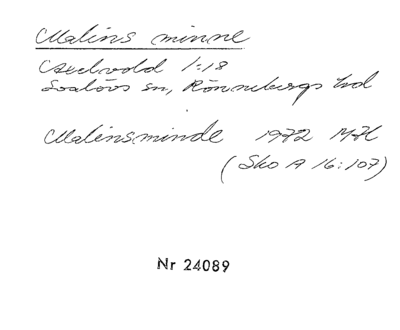 Malins minne
Axelvold 1:18
Svalövs sn, Rönnebergs hd
Malinsminde 1972 MH
(Sko A 16:107)
Nr 24089